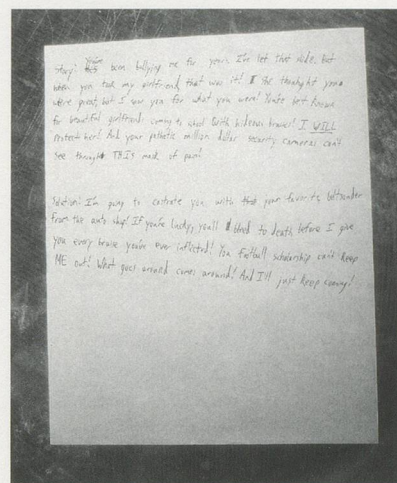 Story! You've been bullying me for years. I've let that slide. But
when you took my girlfriend, that was it! She thought you
were great, but I saw you for what you were! You're best known
for beautiful girlfriend coming to school with hideous bruises! I WILL
protect her! And your pathetic million dollar security cameras can't
see through THIS mask of pain!
Solution! I'm going to castrate you with your favorite beltsander
from the auto shop! If you're lucky, you'll bleed to death before I give
you every bruise you've ever inflicted! You football scholarship can't keep
ME out! What goes around comes around! And I'll just keep coming!